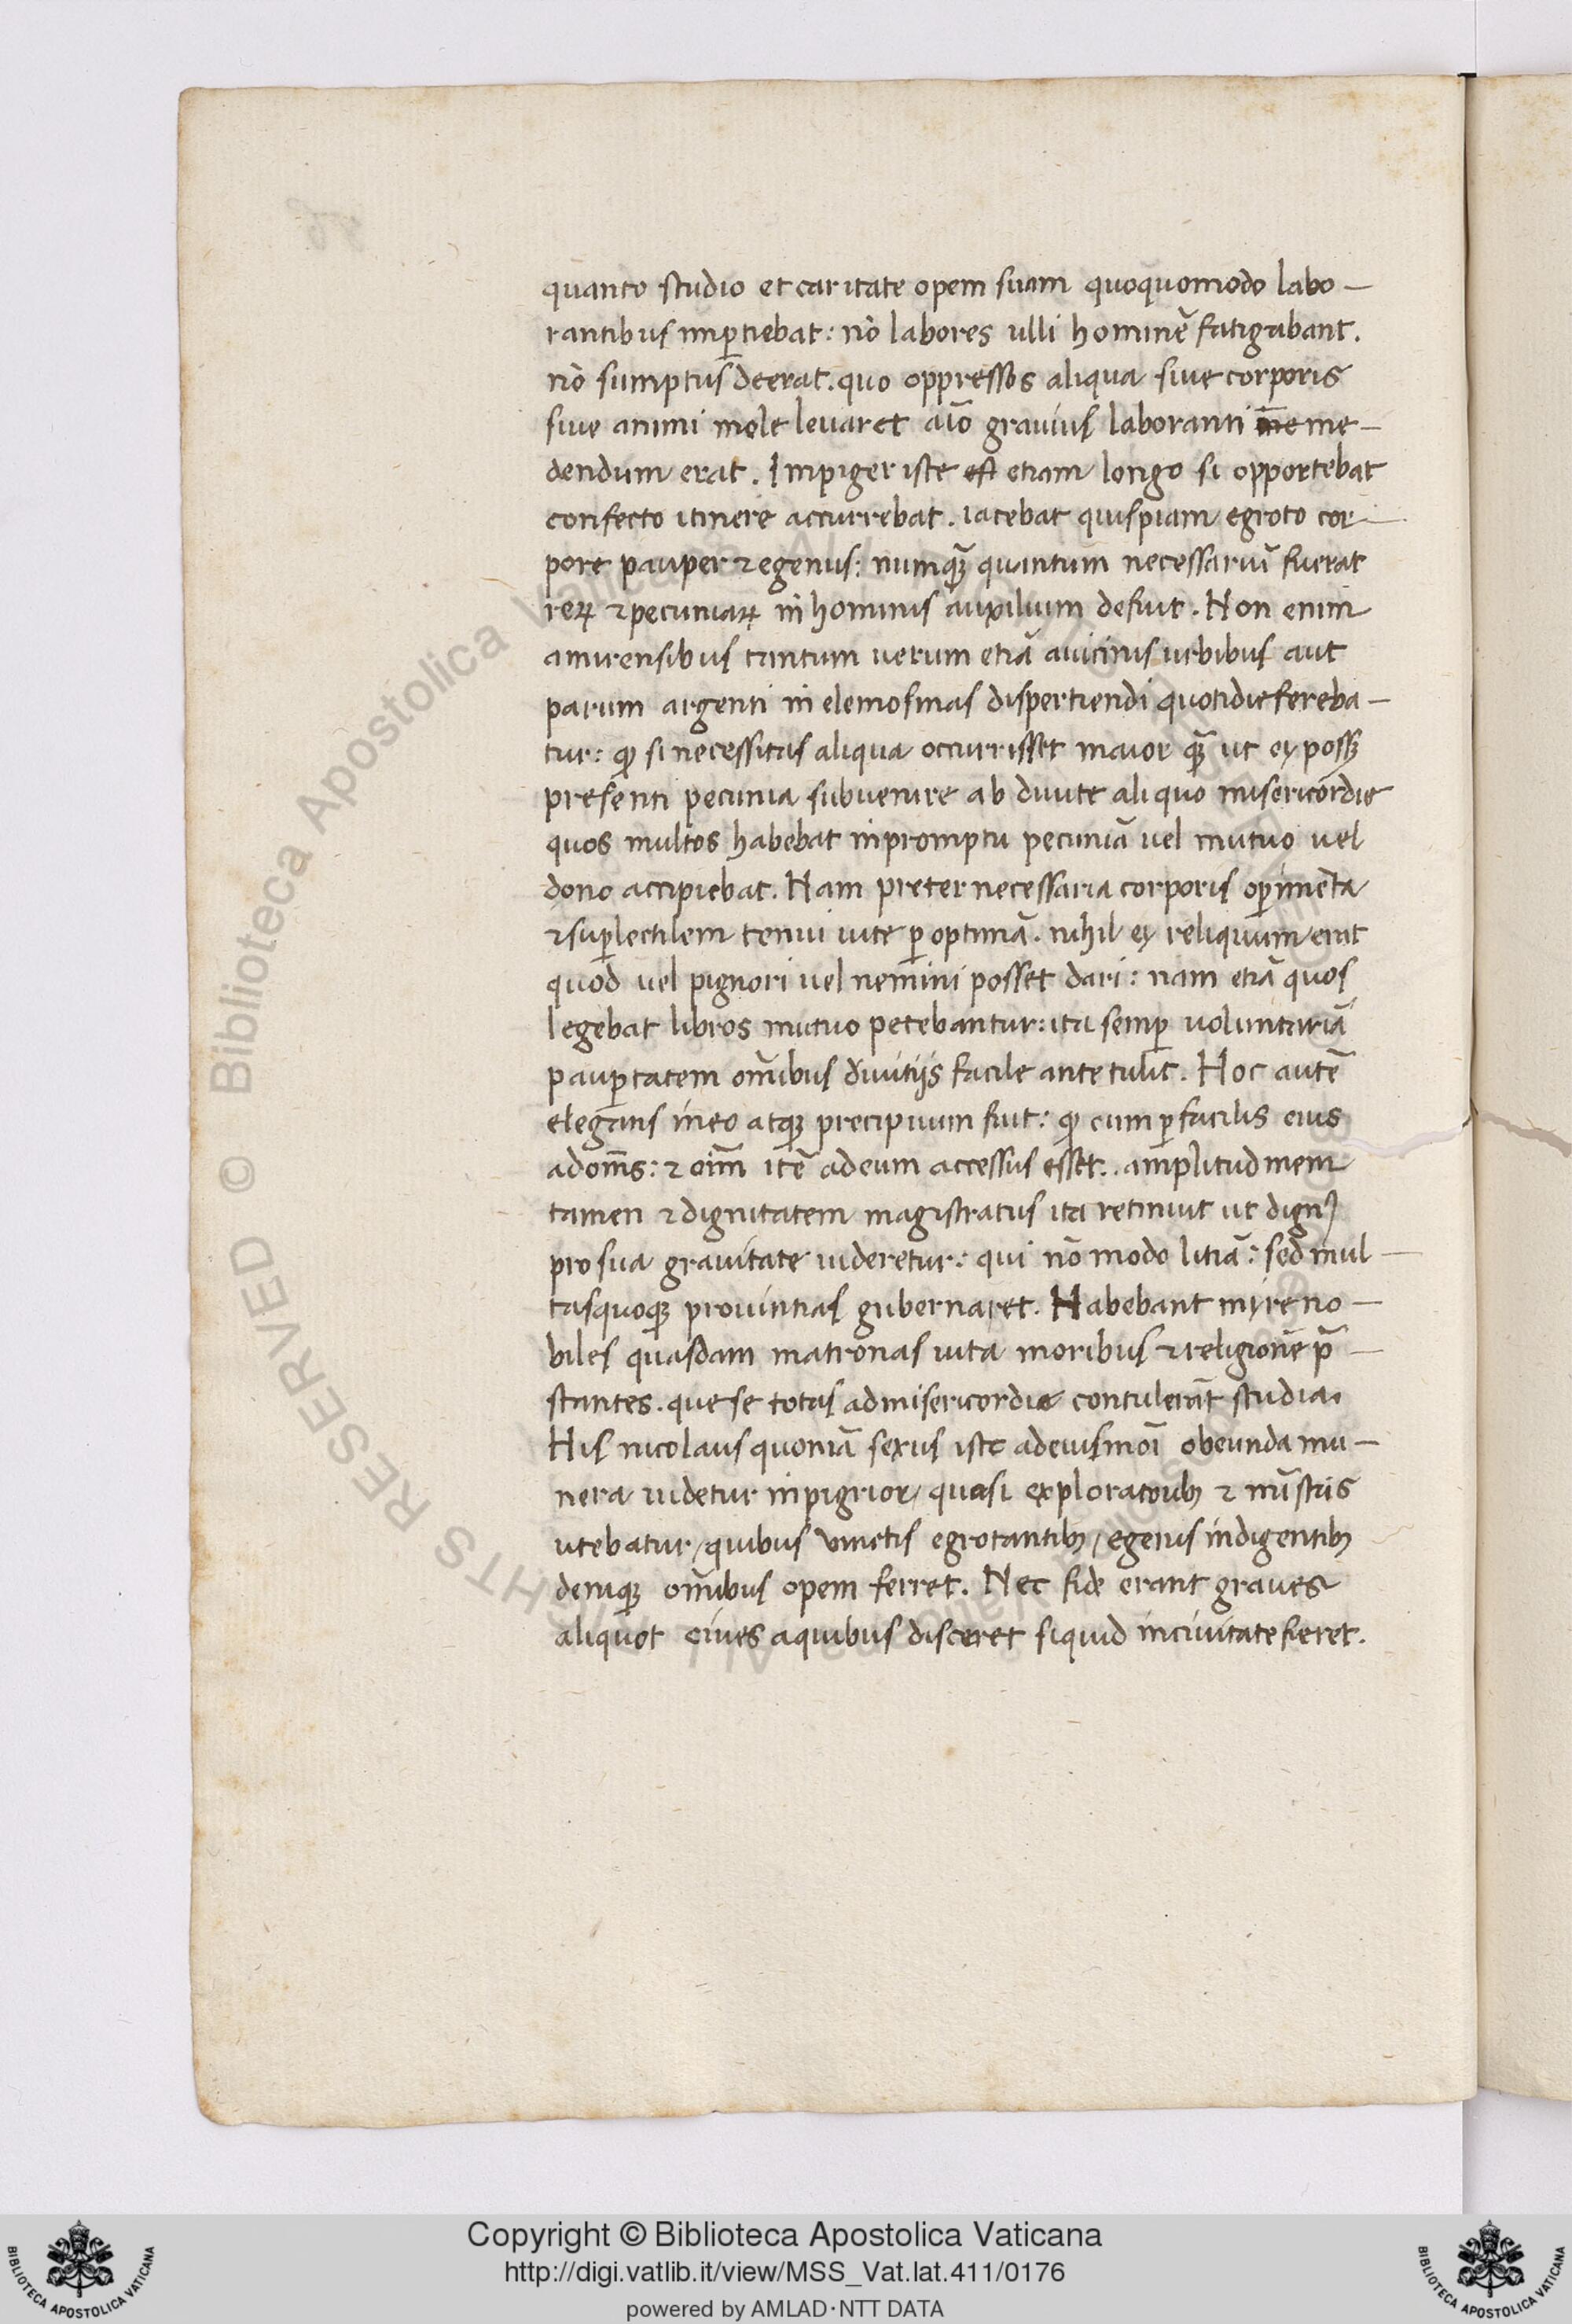 quanto studio et caritate opem suam quoquomodo labo—
rantibus imꝑtiebat: nō labores ulli hominē fatigabant.
nō sumptus deerat. quo oppressos aliqua siue corporis
siue animi mole leuaret aīo grauius laboranti me—
dendum erat. Impiger iste est etiam longo si opportebat
confecto itinere accurrebat. iacebat quispiam egroto cor—
pore pauper ⁊ egenus: numqȝ̄ quantum necessariū fuerat
reꝝ ⁊ pecuniaꝝ in hominis auxilium defuit. Non enim
amirensibus tantum uerum etiā auicinis urbibus aut
parum argenti in elemosinas dispertiendi quotidie fereba—
tur: qꝫ si necessitas aliqua occurrisset maior qȝ̄ ut ei possꝫ
presenti pecunia subuenire ab diuite aliquo misericordie
quos multos habebat inpromptu pecuniā uel mutuo uel
dono accipiebat. Nam preter necessaria corporis oꝑimenta
⁊ suꝑlectilem tenui uite ꝑ optimā. nihil ei reliquum erat
quod uel pignori uel nemini posset dari: nam etiā quos
legebat libros mutuo petebantur: ita semꝑ uoluntariā
pauꝑtatem om̄ibus diuitijs facile ante tulit. Hoc autē
elegans ineo atqꝫ precipuum fuit: qꝫ cum ꝑfacilis eius
adom̄s: ⁊ oīm itē adeum accessus esset. amplitudinem
tamen ⁊ dignitatem magistratus ita retinuit ut dignꝰ
pro sua grauitate uideretur: qui nō modo litiā: sed mul—
tasquoqꝫ prouintias gubernaret. Habebant myre no—
biles quasdam matronas uita moribus ⁊ religione p̄—
stantes. que se totas admisericordie contulerāt studia.
His nicolaus quoniā sexus iste adeiusmōi obeunda mu—
nera uidetur inpigrior/ quasi exploratoribꝫ ⁊ mīstris
utebatur/ quibus uinctis egrotantibꝫ/ egenis indigentibꝫ
deniqꝫ om̄ibus opem ferret. Nec fide erant graues
aliquot ciues aquibus disceret siquid inciuitate fieret.
© Biblioteca Apostolica Vaticana
Copyright © Biblioteca Apostolica Vaticana
http://digi.vatlib.it/view/MSS_Vat.lat.411/0176
powered by AMLAD·NTT DATA
BIBLIOTECA APOSTOLICA VATICANA
BIBLIOTECA APOSTOLICA VATICANA